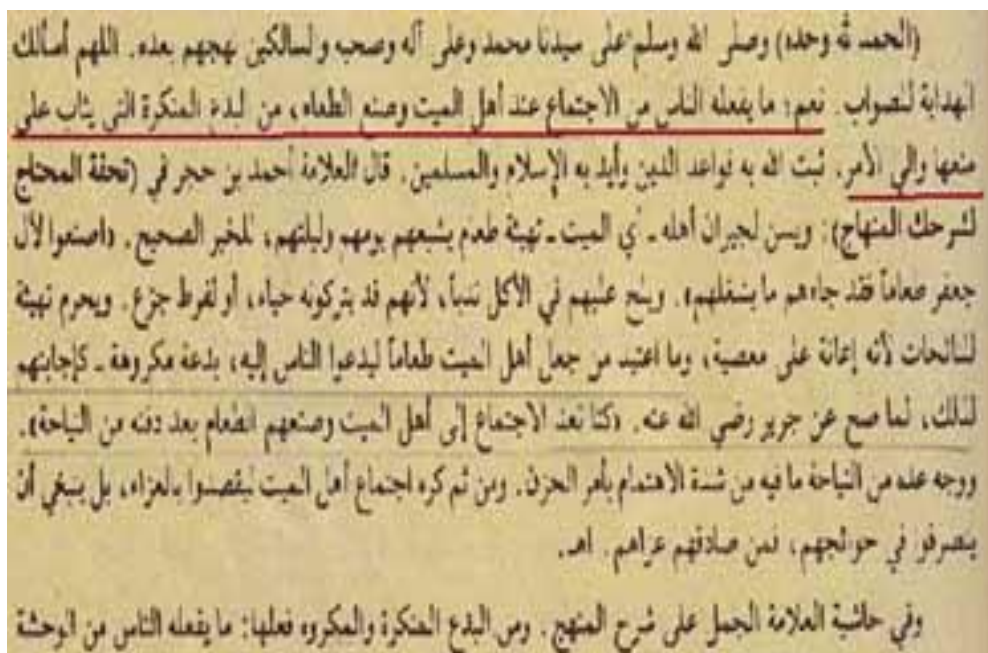 (الحمد لله وحده) وصلى الله وسلم على سيدنا محمد وعلى آله وصحبه والسالكين نهجهم بعده. اللهم أسألك
الهداية للصواب. نعم؛ ما يفعله الناس من الاجتماع عند أهل الميت وصنع الطعام، من البدع المنكرة التي يثاب على
منعها والي الأمر. ثبت الله به قواعد الدين وأيد به الإسلام والمسلمين. قال العلامة أحمد بن حجر في (تحفة المحتاج
لشرحك المنهاج): ويسن لجيران أهله ـ أي الميت ـ تهيئة طعام يشبعهم يومهم وليلتهم، للخبر الصحيح. «اصنعوا لآل
جعفر طعاماً فقد جاءهم ما يشغلهم». ويلح عليهم في الأكل ندباً، لأنهم قد يتركونه حياء، أو لفرط جزع. ويحرم تهيئة
للنائحات لأنه إعانة على معصية، وما اعتيد من جعل أهل الميت طعاماً ليدعوا الناس إليه، بدعة مكروهة ـ كإجابتهم
لذلك، لما صح عن جرير رضي الله عنه. «كنا نعد الاجتماع إلى أهل الميت وصنعهم الطعام بعد دفنه من النياحة».
ووجه عده من النياحة ما فيه من شدة الاهتمام بأمر الحزن. ومن ثم كره اجتماع أهل الميت ليقصدوا بالعزاء، بل ينبغي أن
ينصرفوا في حوائجهم، فمن صادفهم عزاهم. اهـ.
وفي حاشية العلامة الجمل على شرح المنهج. ومن البدع المنكرة والمكروه فعلها: ما يفعله الناس من الوحشة